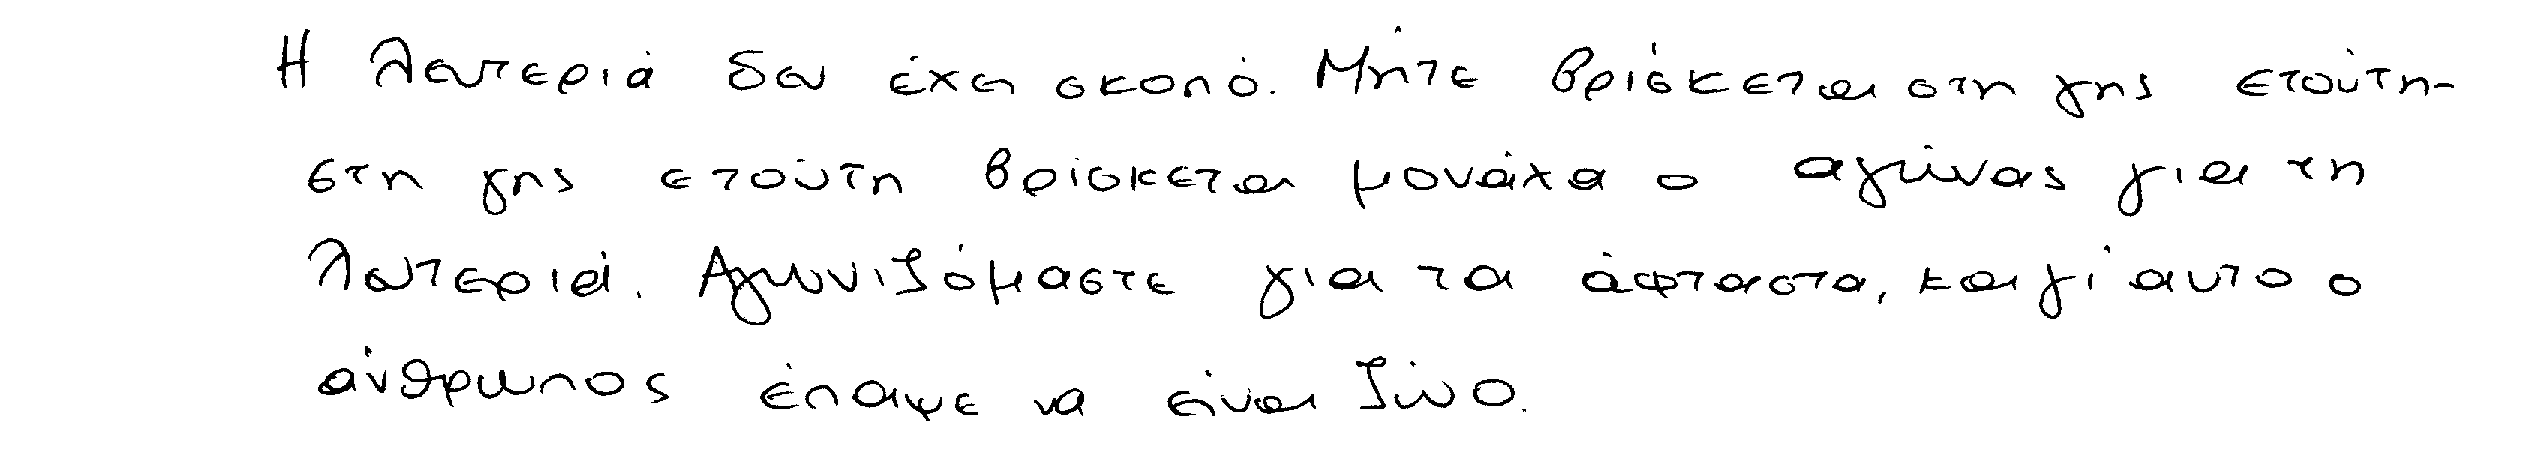 Η λευτεριά δεν έχει σκοπό. Μήτε βρίσκεται στη γης ετούτη-
στη γης ετούτη βρίσκεται μονάχα ο αγώνας για τη
λευτεριά. Αγωνιζόμαστε για τα άφταστα, και γι' αυτο ο
άνθρωπος έπαψε να είναι ζώο.